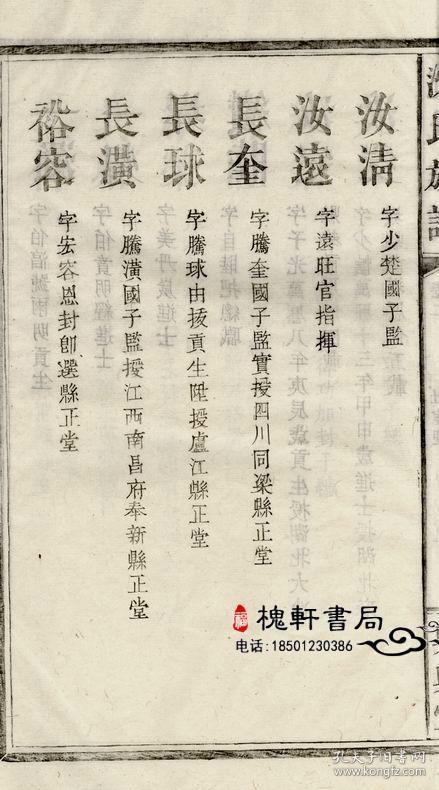 汝淸
字少楚國子監
汝遠
字遠旺官指揮
長奎
字騰奎國子監實授四川同梁縣正堂
長球
字騰球由拔貢生陞授盧江縣正堂
長潢
字騰潢國子監授江西南昌府奉新縣正堂
裕容
字宏容恩封卽選縣正堂
氏族譜
槐軒書局
电话:18501230386
孔夫子旧书网
www.kongfz.com